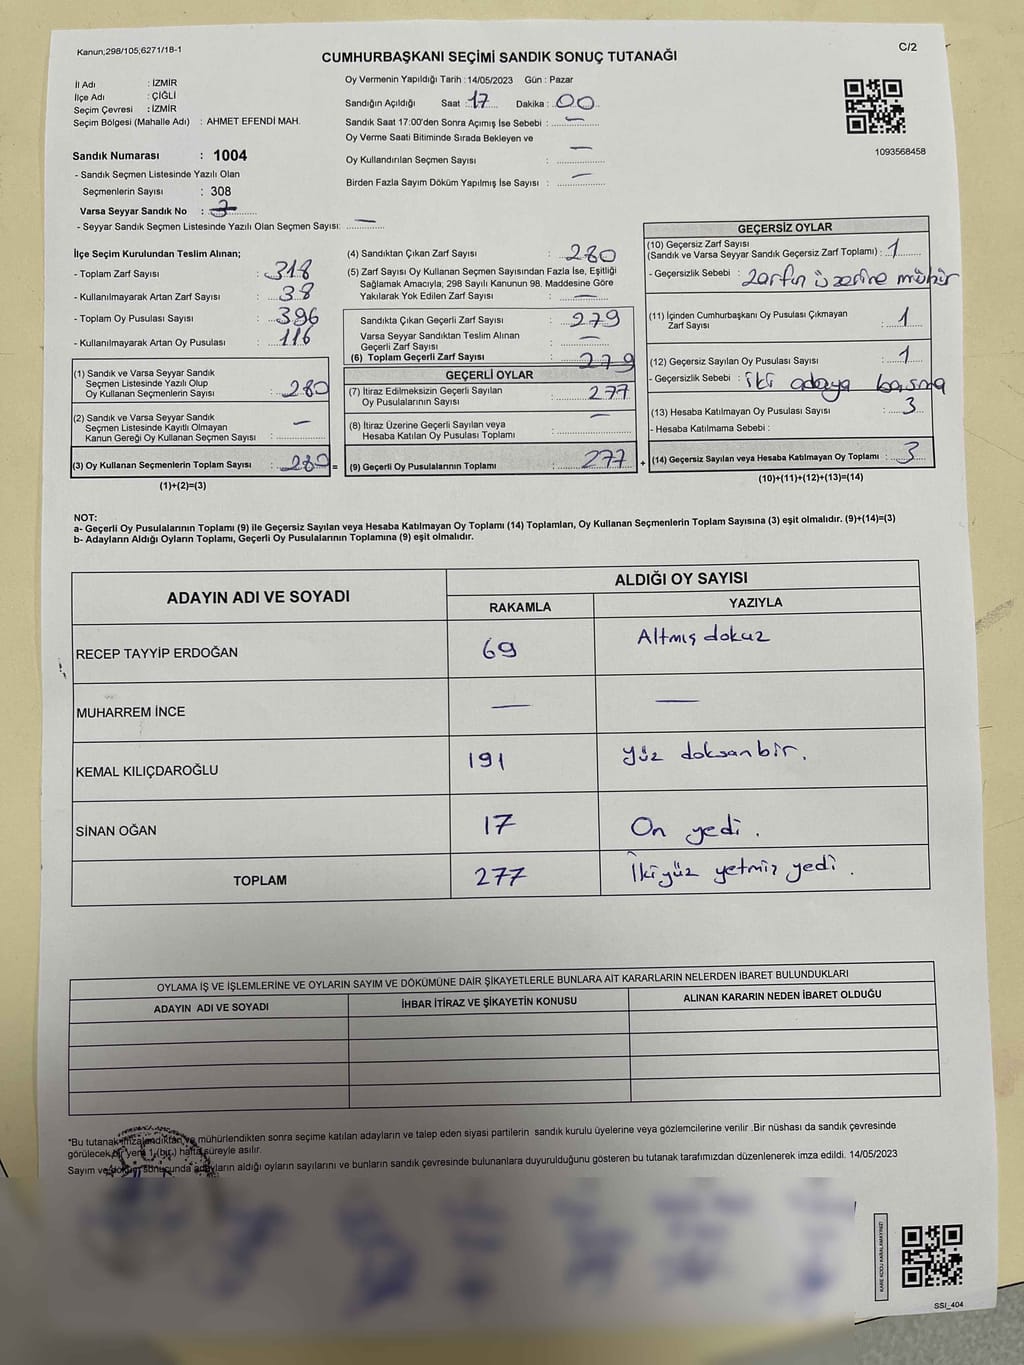 Kanun;298/105,6271/18-1
C/2
CUMHURBAŞKANI SEÇİMİ SANDIK SONUÇ TUTANAĞI
İl Adı : İZMİR
İlçe Adı : ÇİĞLİ
Seçim Çevresi : İZMİR
Seçim Bölgesi (Mahalle Adı) : AHMET EFENDİ MAH.
Sandık Numarası : 1004
- Sandık Seçmen Listesinde Yazılı Olan
Seçmenlerin Sayısı : 308
Varsa Seyyar Sandık No :
- Seyyar Sandık Seçmen Listesinde Yazılı Olan Seçmen Sayısı: —
Oy Vermenin Yapıldığı Tarih : 14/05/2023 Gün : Pazar
Sandığın Açıldığı Saat : 17 Dakika : 00
Sandık Saat 17:00'den Sonra Açımış İse Sebebi : —
Oy Verme Saati Bitiminde Sırada Bekleyen ve
Oy Kullandırılan Seçmen Sayısı : —
Birden Fazla Sayım Döküm Yapılmış İse Sayısı : —
1093568458
İlçe Seçim Kurulundan Teslim Alınan;
- Toplam Zarf Sayısı : 318
- Kullanılmayarak Artan Zarf Sayısı : 38
- Toplam Oy Pusulası Sayısı : 396
- Kullanılmayarak Artan Oy Pusulası : 116
(1) Sandık ve Varsa Seyyar Sandık
Seçmen Listesinde Yazılı Olup
Oy Kullanan Seçmenlerin Sayısı : 280
(2) Sandık ve Varsa Seyyar Sandık
Seçmen Listesinde Kayıtlı Olmayan
Kanun Gereği Oy Kullanan Seçmen Sayısı : —
(3) Oy Kullanan Seçmenlerin Toplam Sayısı : 280 =
(1)+(2)=(3)
(4) Sandıktan Çıkan Zarf Sayısı : 280
(5) Zarf Sayısı Oy Kullanan Seçmen Sayısından Fazla İse, Eşitliği
Sağlamak Amacıyla; 298 Sayılı Kanunun 98. Maddesine Göre
Yakılarak Yok Edilen Zarf Sayısı : —
Sandıkta Çıkan Geçerli Zarf Sayısı : 279
Varsa Seyyar Sandıktan Teslim Alınan
Geçerli Zarf Sayısı : —
(6) Toplam Geçerli Zarf Sayısı : 279
GEÇERLİ OYLAR
(7) İtiraz Edilmeksizin Geçerli Sayılan
Oy Pusulalarının Sayısı : 277
(8) İtiraz Üzerine Geçerli Sayılan veya
Hesaba Katılan Oy Pusulası Toplamı : —
(9) Geçerli Oy Pusulalarının Toplamı : 277 +
GEÇERSİZ OYLAR
(10) Geçersiz Zarf Sayısı
(Sandık ve Varsa Seyyar Sandık Geçersiz Zarf Toplamı) : 1
- Geçersizlik Sebebi : zarfın üzerine mühür
(11) İçinden Cumhurbaşkanı Oy Pusulası Çıkmayan
Zarf Sayısı : 1
(12) Geçersiz Sayılan Oy Pusulası Sayısı : 1
- Geçersizlik Sebebi : iki adaya basma
(13) Hesaba Katılmayan Oy Pusulası Sayısı : 3
- Hesaba Katılmama Sebebi :
(14) Geçersiz Sayılan veya Hesaba Katılmayan Oy Toplamı : 3
(10)+(11)+(12)+(13)=(14)
NOT:
a- Geçerli Oy Pusulalarının Toplamı (9) ile Geçersiz Sayılan veya Hesaba Katılmayan Oy Toplamı (14) Toplamları, Oy Kullanan Seçmenlerin Toplam Sayısına (3) eşit olmalıdır. (9)+(14)=(3)
b- Adayların Aldığı Oyların Toplamı, Geçerli Oy Pusulalarının Toplamına (9) eşit olmalıdır.
ADAYIN ADI VE SOYADI
ALDIĞI OY SAYISI
RAKAMLA YAZIYLA
RECEP TAYYİP ERDOĞAN 69 Altmış dokuz
MUHARREM İNCE — —
KEMAL KILIÇDAROĞLU 191 yüz doksan bir.
SİNAN OĞAN 17 On yedi.
TOPLAM 277 İkiyüz yetmiş yedi.
OYLAMA İŞ VE İŞLEMLERİNE VE OYLARIN SAYIM VE DÖKÜMÜNE DAİR ŞİKAYETLERLE BUNLARA AİT KARARLARIN NELERDEN İBARET BULUNDUKLARI
ADAYIN ADI VE SOYADI İHBAR İTİRAZ VE ŞİKAYETİN KONUSU ALINAN KARARIN NEDEN İBARET OLDUĞU
*Bu tutanak imzalandıktan ve mühürlendikten sonra seçime katılan adayların ve talep eden siyasi partilerin sandık kurulu üyelerine veya gözlemcilerine verilir .Bir nüshası da sandık çevresinde
görülecek bir yere 1 (bir) hafta süreyle asılır.
Sayım ve döküm sonucunda adayların aldığı oyların sayılarını ve bunların sandık çevresinde bulunanlara duyurulduğunu gösteren bu tutanak tarafımızdan düzenlenerek imza edildi. 14/05/2023
KARE KODU KARALAMAYINIZ!
SSİ_404